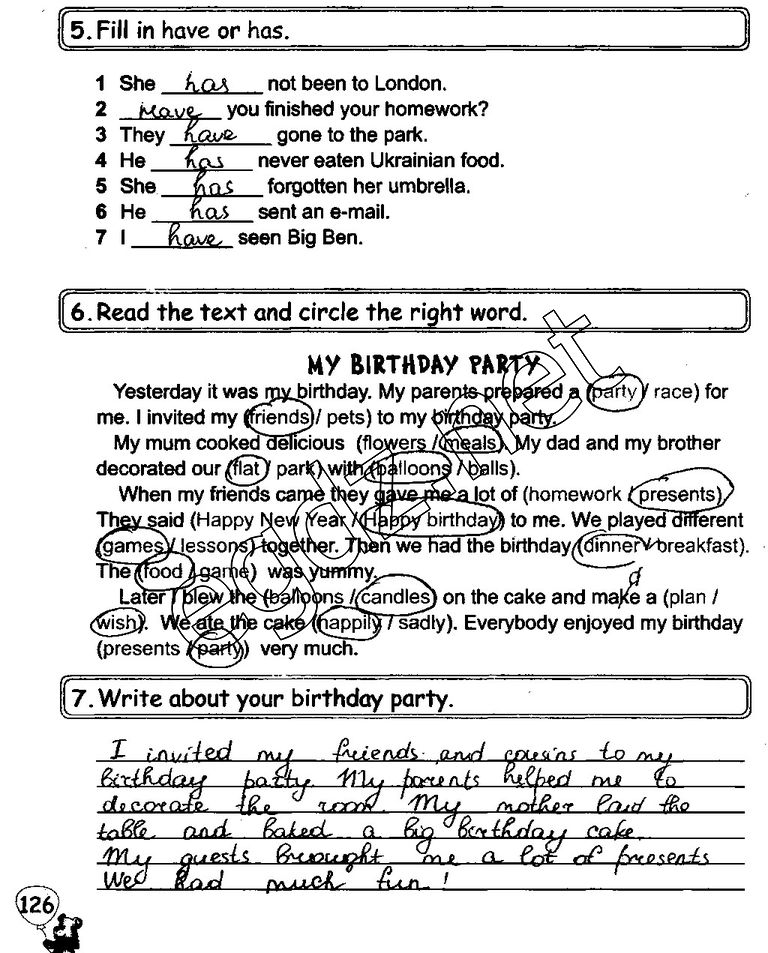 5. Fill in have or has.
1 She has not been to London.
2 Have you finished your homework?
3 They have gone to the park.
4 He has never eaten Ukrainian food.
5 She has forgotten her umbrella.
6 He has sent an e-mail.
7 I have seen Big Ben.
6. Read the text and circle the right word.
MY BIRTHDAY PARTY
Yesterday it was my birthday. My parents prepared a (party / race) for
me. I invited my (friends / pets) to my birthday party.
My mum cooked delicious (flowers / meals). My dad and my brother
decorated our (flat / park) with (balloons / balls).
When my friends came they gave me a lot of (homework / presents).
They said (Happy New Year / Happy birthday) to me. We played different
(games / lessons) together. Then we had the birthday (dinner / breakfast).
The (food / game) was yummy.
Later I blew the (balloons / candles) on the cake and make a (plan /
wish). We ate the cake (happily / sadly). Everybody enjoyed my birthday
(presents / party) very much.
7. Write about your birthday party.
I invited my friends and cousins to my
birthday party. My parents helped me to
decorate the room. My mother laid the
table and baked a big birthday cake.
My guests brought me a lot of presents
We had much fun!
126
egdz.net